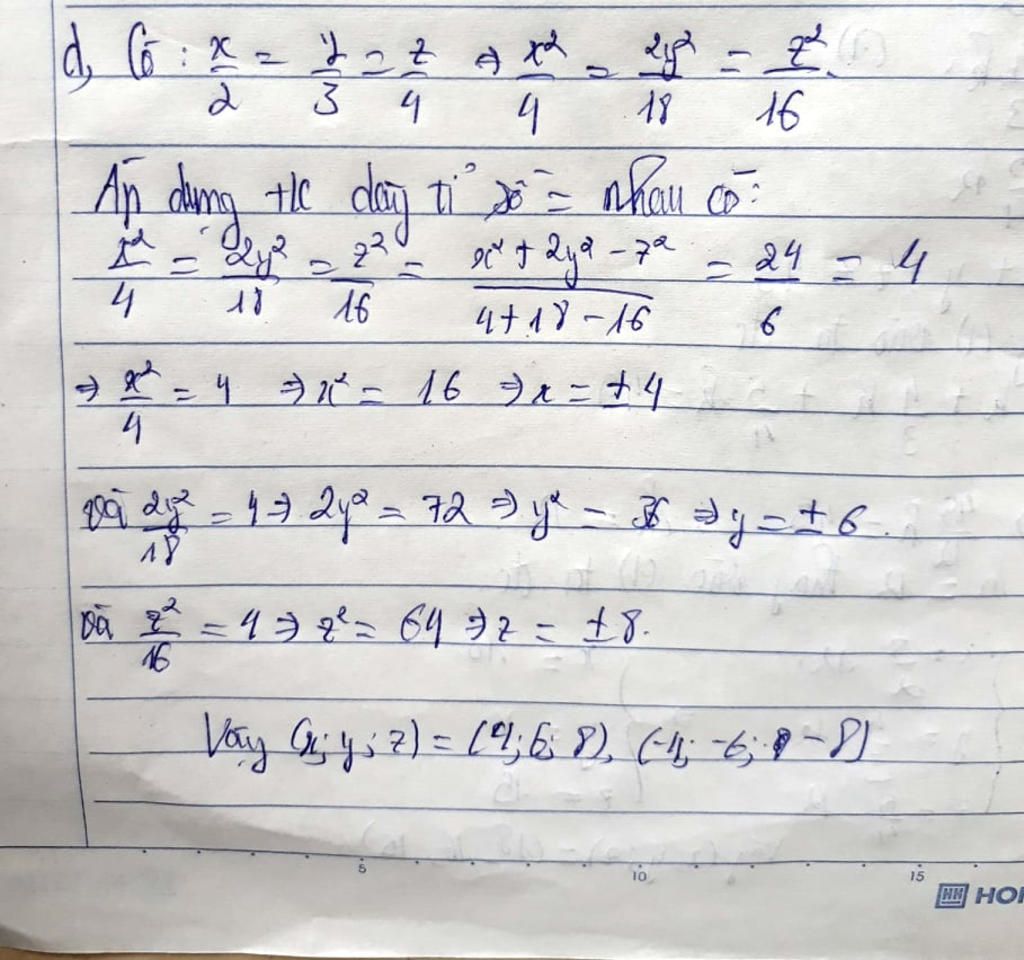 d, Có : x/2 = y/3 = z/4 ⇒ x²/4 = 2y²/18 = z²/16.
Áp dụng t/c dãy tỉ số = nhau có:
x²/4 = 2y²/18 = z²/16 = (x² + 2y² - z²)/(4+18-16) = 24/6 = 4
⇒ x²/4 = 4 ⇒ x² = 16 ⇒ x = ±4
Và 2y²/18 = 4 ⇒ 2y² = 72 ⇒ y² = 36 ⇒ y = ±6.
Và z²/16 = 4 ⇒ z² = 64 ⇒ z = ±8.
Vậy (x; y; z) = (4; 6; 8), (-4; -6; -8)
5 10 15
HH